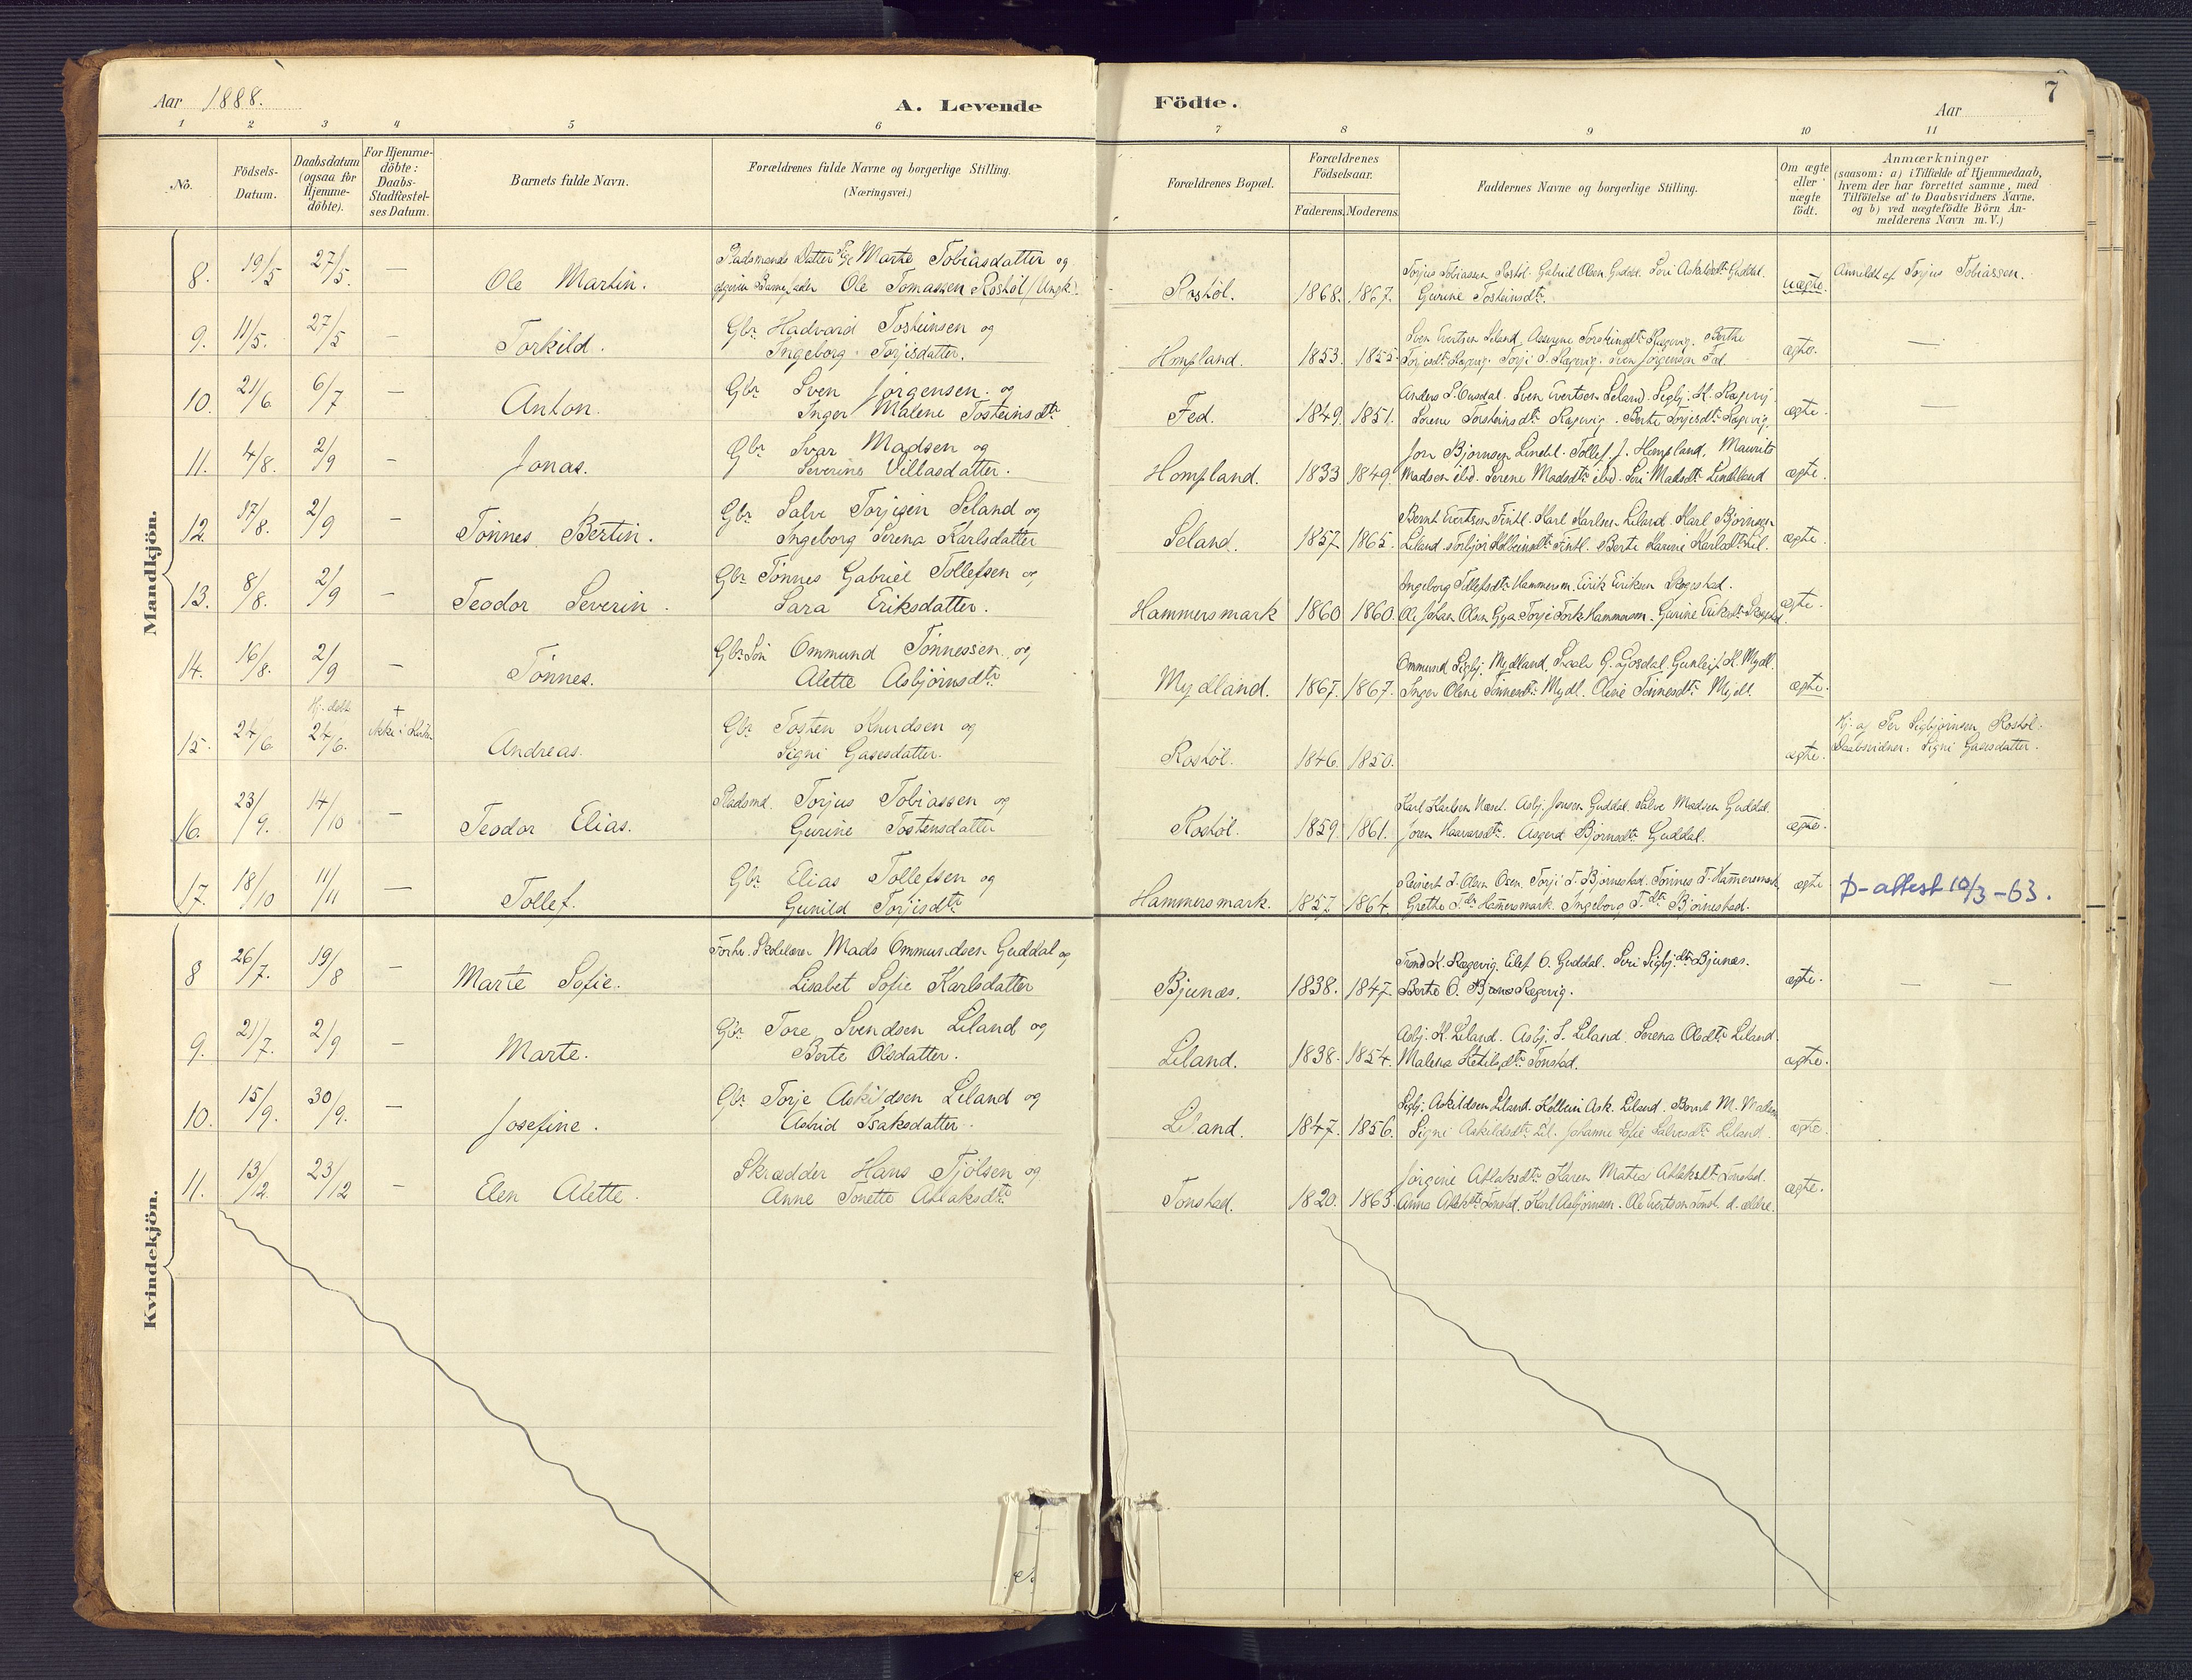 Aar 1888. A. Levende Födte. Aar 7
1 2 3 4 5 6 7 8 9 10 11
No.
Födsels-Datum.
Daabsdatum (ogsaa for Hjemme-döbte).
For Hjemme-döbte: Daabs-Stadfæstel-ses Datum.
Barnets fulde Navn.
Forældrenes fulde Navne og borgerlige Stilling.
(Næringsvei.)
Forældrenes Bopæl.
Forældrenes Födselsaar.
Faderens. Moderens.
Faddernes Navne og borgerlige Stilling.
Om ægte eller uægte födt.
Anmærkninger
(saasom: a) i Tilfælde af Hjemmedaab,
hvem der har forrettet samme, med
Tilföielse af to Daabsvidners Navne,
og b) ved uægtefödte Börn An-
melderens Navn m. V.)
Mandkjön.
8. 19/5 27/5. — Ole Martin.
Pladsmands Datter Marte Tobiasdatter og
Barnefader Ole Tomassen Rostöl (Ungk.)
Rostöl. 1868. 1867.
Torjus Tobiassen Rostöl. Gabriel Olsen Guddal. Siri Guddal.
Gurine Tosteinsdtr.
uægte. Anmeldt af Torjus Tobiassen.
9. 11/5. 27/5 — Torkild.
Gbr Hadvard Tosteinsen og
Ingeborg Torjisdatter.
Hompland. 1853. 1855.
Sven Evertsen Seland, Torsteinsdtr Ragevig. Berthe
Torjisdtr Ragevig. Torje S. Ragevig. Sven Jörgensen Fed.
ægte. —
10. 21/6 6/7 — Anton.
Gbr Sven Jörgensen og
Inger Malene Tosteinsdtr
Fed. 1849. 1851.
Anders S. Ousdal. Sven Evertsen Seland. Sigbj. K. Ragevig.
Sorene Torsteinsdtr Ragevig. Berte Torjisdtr Ragevig.
ægte. —
11. 4/8. 2/9 — Jonas.
Gbr Ivar Madsen og
Severine Villasdatter.
Hompland. 1833 1849.
Jon Björnsen Lindel. Tollef J. Hompland. Maurits
Madsen ibd. Serene Madsdtr ibd. Siri Madsdtr Lindeland
ægte.
12. 17/8. 2/9 — Tönnes Bertin.
Gbr Salve Torjesen Seland og
Ingeborg Serena Karlsdatter
Seland. 1857. 1865.
Bernt Evertsen Fintl. Karl Karlsen Liland. Karl Björnsen
Liland. Torbjör Fintl. Berte Karine Karlsdtr Lil.
ægte.
13. 8/8. 2/9 — Teodor Severin.
Gbr Tönnes Gabriel Tollefsen og
Sara Eriksdatter.
Hammersmark 1860 1860.
Ingeborg Tollefsdtr Hammersm. Eirik Eriksen Skogestad.
Ole Johan Olsen Gya. Torje Tork. Hammersm. Gurine Eriksdtr Skogestad.
ægte.
14. 16/8. 2/9 — Tönnes.
Gbr Sön Ommund Tönnessen og
Alette Asbjörnsdtr
Mydland. 1867. 1867.
Ommund Sigbj. Mydland. G. Gosdal. Gunleif K. Mydl.
Inger Oline Tönnesdtr Mydl. Oline Tönnesdtr Mydl.
ægte.
15. 24/6 Hj. döbt 24/6. † ikke i Kirken Andreas.
Gbr Tosten Knudsen og
Signi Gasesdatter.
Rostöl. 1846. 1850.
ægte.
Hj. af Per Sigbjörnsen Rostöl.
Daabsvidner: Signi Gasesdatter.
16. 23/9. 14/10 — Teodor Elias.
Pladsmd. Torjus Tobiassen og
Gurine Tostensdatter
Rostöl. 1859. 1861.
Karl Karlsen Næset. Asbj. Jonsen Guddal. Salve Madsen Guddal.
Joren Haavarsdtr. Asgerd Björnsdtr Guddal.
ægte.
17. 18/10 11/11 — Tollef.
Gbr Elias Tollefsen og
Gunild Torjisdtr
Hammersmark. 1857. 1864.
Reinert T. Olsen Osen. Torje T. Björnestad. Tönnes T. Hammersmark
Grethe T.dtr Hammersmark. Ingeborg T.dtr Björnestad.
ægte D-attest 10/3-63.
Kvindekjön.
8 26/7. 19/8 — Marte Sofie.
Forhv. Skolelærer Mads Ommundsen Guddal og
Lisabet Sofie Karlsdatter
Bjunæs. 1838. 1847.
Trond K. Ragevig. Eilef O. Guddal. Siri Sigbj.dtr Bjunæs.
Berte O. Ragevig.
ægte. — —
9. 21/7. 2/9 — Marte.
Gbr Tore Svendsen Liland og
Berte Olsdatter.
Liland. 1838. 1854.
Asbj. K. Liland. Asbj. S. Liland. Serena Olsdtr Liland.
Malena Ketilsdtr Tonstad.
ægte.
10. 15/9. 30/9. — Josefine.
Gbr Torje Askildsen Liland og
Astrid Isaksdatter.
Liland. 1847. 1856.
Sigbj. Askildsen Liland. Ask. Liland. Bernt M.
Signi Askildsdtr Lil. Johanne Sofie Salvesdtr Liland.
ægte.
11. 13/12. 23/12 — Elen Alette.
Skrædder Hans Tjölsen og
Anne Tonette Atlaksdtr
Tonstad. 1820. 1863.
Jörgine Atlaksdtr Karen Matea Atlaksdtr Tonstad.
Anna Atlaksdtr Tonstad. Karl Asbjörnsen. Ole Evertsen Tonst. d. ældre.
ægte.